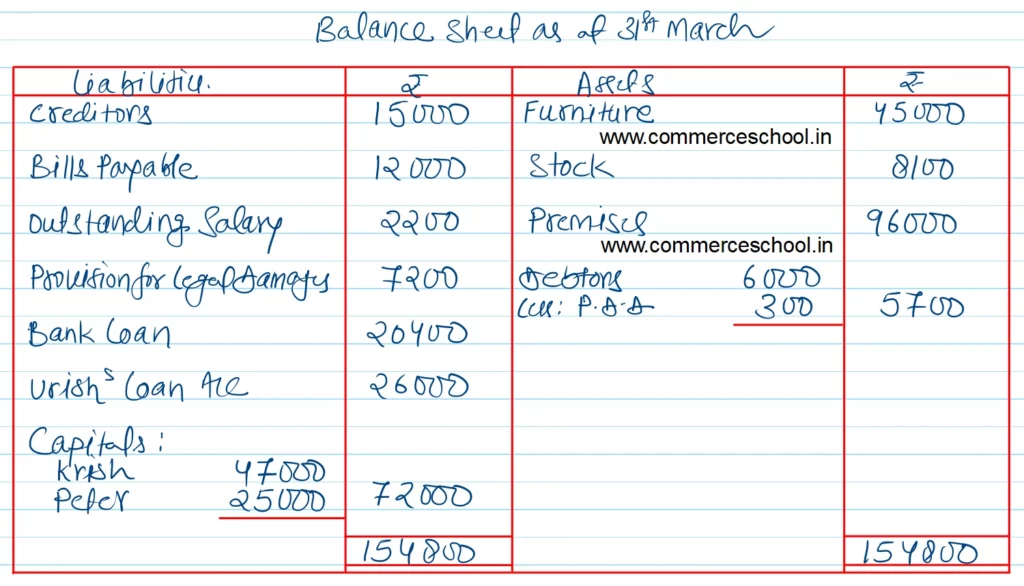 Balance Sheet as at 31st March
Liabilities. ₹ Assets ₹
Creditors 15000 Furniture 45000
www.commerceschool.in
Bills Payable 12000 Stock 8100
Outstanding Salary 2200 Premises 96000
www.commerceschool.in
Provision for Legal Damages 7200 Debtors 6000
Less: P.D.D 300 5700
Bank Loan 20400
Urish's Loan A/c 26000
Capitals:
Krish 47000
Peter 25000 72000
154800 154800